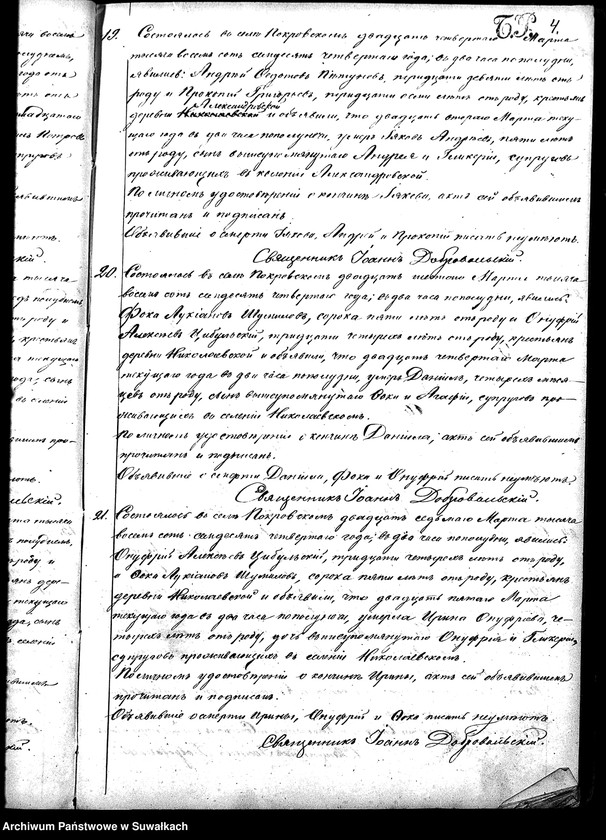 4.
19. Состоялось въ селѣ Покровскомъ двадцать четвертаго Марта
тысяча восемь сотъ семдесятъ четвертаго года; въ два часа по полудни,
явились: Андрей Пиписуновъ, тридцати девяти лѣтъ отъ
роду и Прокопій Григорьевъ, тридцати осми лѣтъ отъ роду, крестьяне
Александровской
деревни Николаевской и объявили, что двадцать втораго Марта теку-
щаго года въ два часа пополудни, умеръ Яковъ Андреевъ, пяти лѣтъ
отъ роду, сынъ вышеупомянутаго Андрея и Гликеріи, супруговъ
проживающихъ въ колоніи Александровской.
По личномъ удостовѣреніи о кончинѣ Якова, актъ сей объявившимъ
прочитанъ и подписанъ.
Объявившіе о смерти Якова, Андрей и Прокопій писать неумѣютъ.
Священникъ Іоаннъ Добровольскій.
20. Состоялось въ селѣ Покровскомъ двадцать шестаго Марта тысяча
восемь сотъ семдесятъ четвертаго года; въ два часа пополудни, явились:
Фока Лукіановъ Шумиловъ, сорока пяти лѣтъ отъ роду и Онуфрій
Алексѣевъ Цибульскій, тридцати четырехъ лѣтъ отъ роду, крестьяне
деревни Николаевской и объявили, что двадцать четвертаго Марта
текущаго года въ два часа пополудни, умеръ Даніилъ, четырехъ мѣся-
цевъ отъ роду, сынъ вышеупомянутаго Фоки и Агафіи, супруговъ про-
живающихъ въ селеніи Николаевскомъ.
По личномъ удостовѣреніи о кончинѣ Даніила, актъ сей объявившимъ
прочитанъ и подписанъ.
Объявившіе о смерти Даніила, Фока и Онуфрій писать неумѣютъ.
Священникъ Іоаннъ Добровольскій.
21. Состоялось въ селѣ Покровскомъ двадцать седьмаго Марта тысяча
восемь сотъ семдесятъ четвертаго года; въ два часа пополудни, явились:
Онуфрій Алексѣевъ Цибульскій, тридцати четырехъ лѣтъ отъ роду,
и Фока Лукіановъ Шумиловъ, сорока пяти лѣтъ отъ роду, крестьяне
деревни Николаевской и объявили, что двадцать пятаго Марта
текущаго года въ два часа пополудни, умерла Ирина Онуфріева, че-
тырехъ лѣтъ отъ роду, дочь вышеупомянутаго Онуфрія и Гликеріи,
супруговъ проживающихъ въ селеніи Николаевскомъ.
По личномъ удостовѣреніи о кончинѣ Ирины, актъ сей объявившимъ
прочитанъ и подписанъ.
Объявившіе о смерти Ирины, Онуфрій и Фока писать неумѣютъ.
Священникъ Іоаннъ Добровольскій.
Archiwum Państwowe w Suwałkach